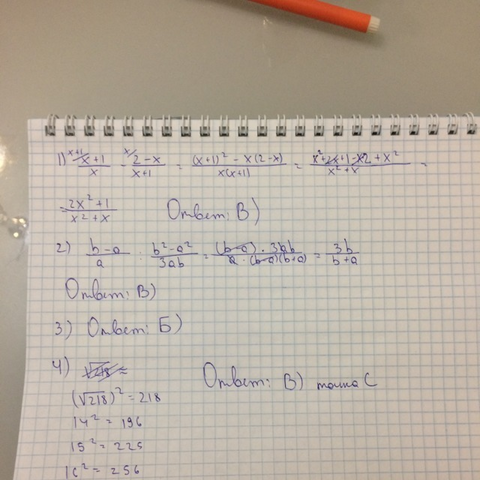 1) ˣ⁺¹/ (x+1)/x - ˣ/ (2-x)/(x+1) = ((x+1)² - x(2-x))/(x(x+1)) = (x²+2x+1-x2+x²)/(x²+x) =
= (2x²+1)/(x²+x) Ответ: В)
2) (b-a)/a : (b²-a²)/(3ab) = ((b-a) · 3ab)/(a · (b-a)(b+a)) = 3b/(b+a)
Ответ: В)
3) Ответ: Б)
4) √218 ≈
Ответ: В) точка С
(√218)² = 218
14² = 196
15² = 225
16² = 256